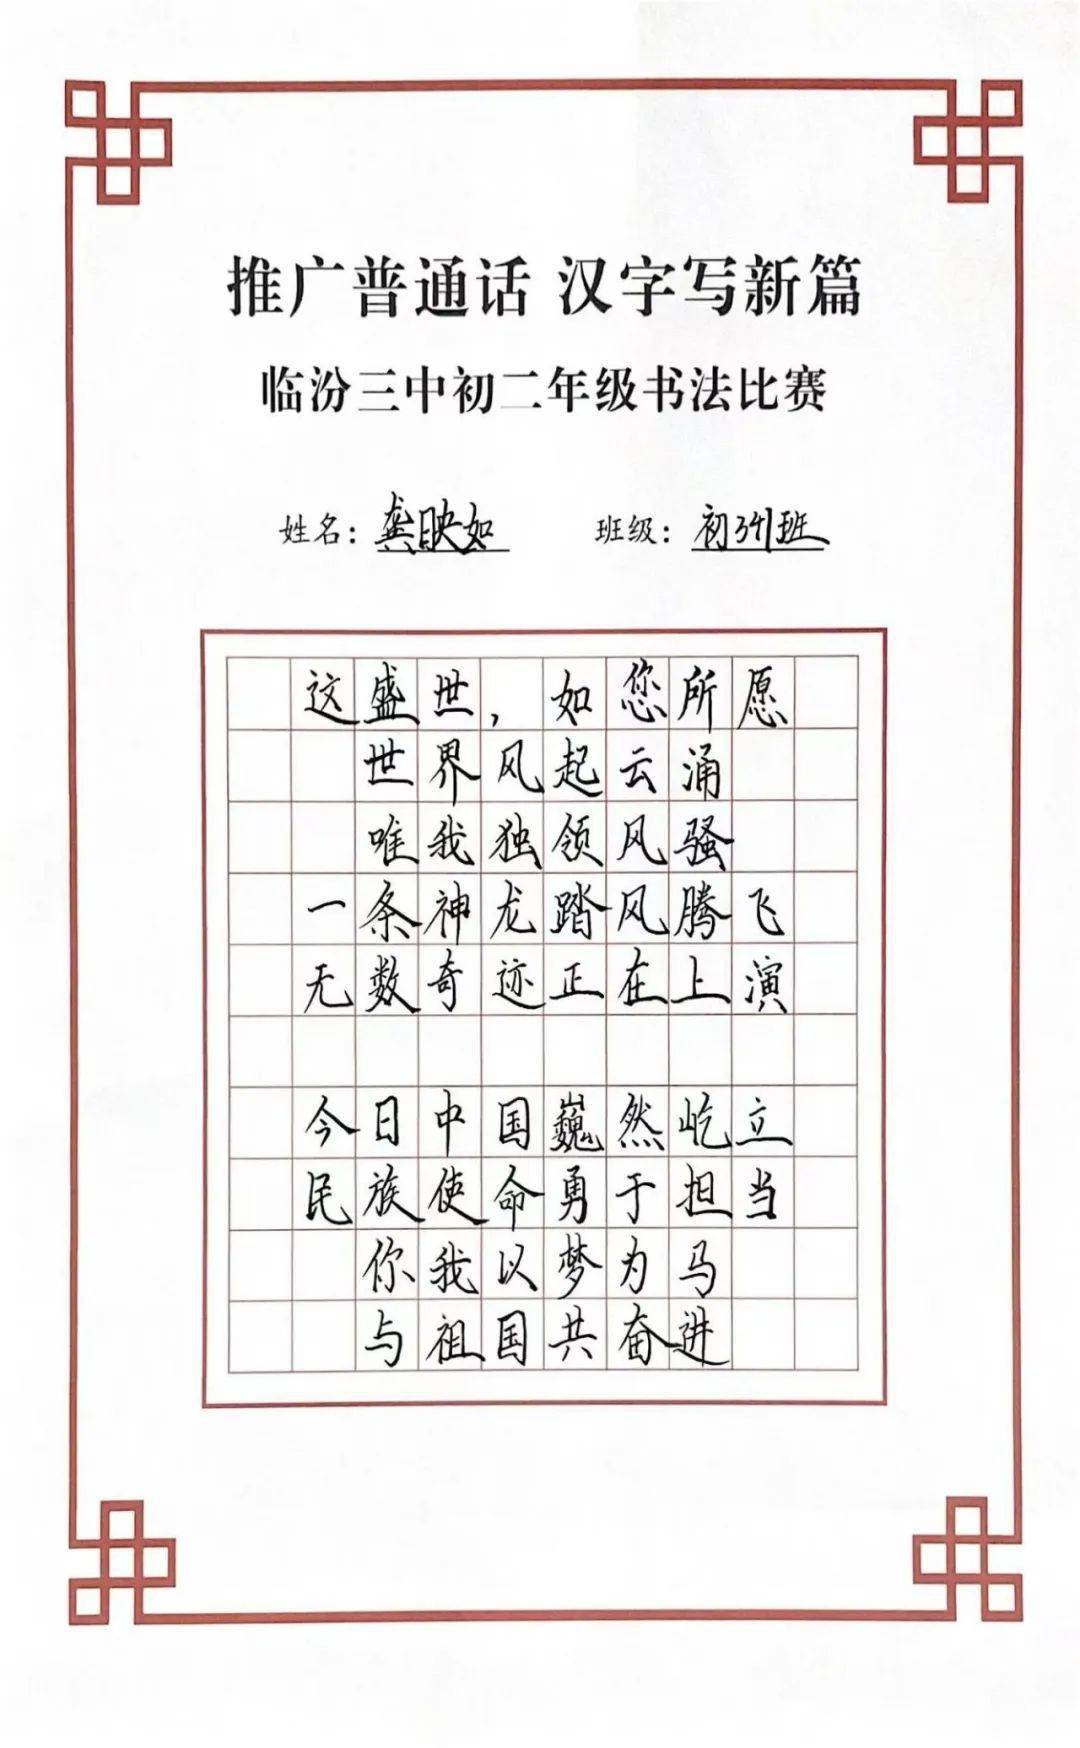 推广普通话 汉字写新篇
临汾三中初二年级书法比赛
姓名：龚映如 班级：初341班
这盛世，如您所愿
世界风起云涌
唯我独领风骚
一条神龙踏风腾飞
无数奇迹正在上演
今日中国巍然屹立
民族使命勇于担当
你我以梦为马
与祖国共奋进